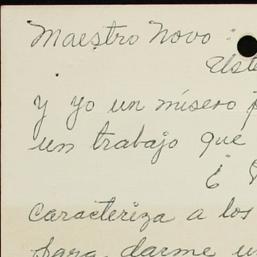 Maestro Novo:
Uste
y yo un mísero
un trabajo que
¿
caracteriza a los
para darme u